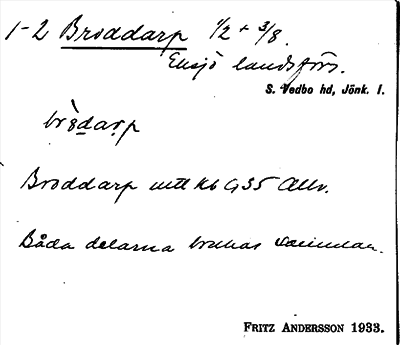 1-2 Broddarp 1/2 + 3/8.
Eksjö landsförs.
S. Vedbo hd, Jönk. l.
brödarp
Broddarp mtl Kb G35 Allv.
Båda delarna brukas samman.
FRITZ ANDERSSON 1933.